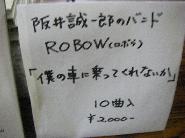 阪井誠一郎のバンド
ROBOW(ロボゥ)
「僕の車に乗ってくれないか」
10曲入
¥2,000-